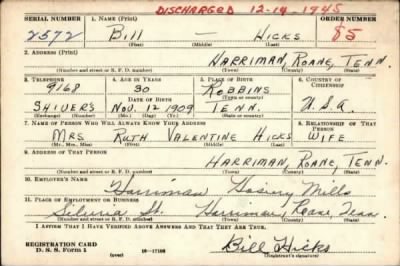 DISCHARGED 12-14-1945
SERIAL NUMBER 1. NAME (Print) ORDER NUMBER
2572 BILL — HICKS 85
(First) (Middle) (Last)
2. ADDRESS (Print)
HARRIMAN, ROANE, TENN.
(Number and street or R. F. D. number) (Town) (County) (State)
3. TELEPHONE 4. AGE IN YEARS 5. PLACE OF BIRTH 6. COUNTRY OF CITIZENSHIP
9168 30 ROBBINS
DATE OF BIRTH (Town or county)
SHIVERS NOV. 12 1909 TENN. U.S.A.
(Exchange) (Number) (Mo.) (Day) (Yr.) (State or country)
7. NAME OF PERSON WHO WILL ALWAYS KNOW YOUR ADDRESS 8. RELATIONSHIP OF THAT PERSON
MRS RUTH VALENTINE HICKS WIFE
(Mr., Mrs., Miss) (First) (Middle) (Last)
9. ADDRESS OF THAT PERSON
HARRIMAN, ROANE, TENN.
(Number and street or R. F. D. number) (Town) (County) (State)
10. EMPLOYER'S NAME
Harriman Hosiery Mills
11. PLACE OF EMPLOYMENT OR BUSINESS
St. Harriman, Roane, Tenn.
(Number and street or R. F. D. number) (Town) (County) (State)
I AFFIRM THAT I HAVE VERIFIED ABOVE ANSWERS AND THAT THEY ARE TRUE.
REGISTRATION CARD
D. S. S. Form 1 (over) 16—17105 Bill Hicks
(Registrant's signature)